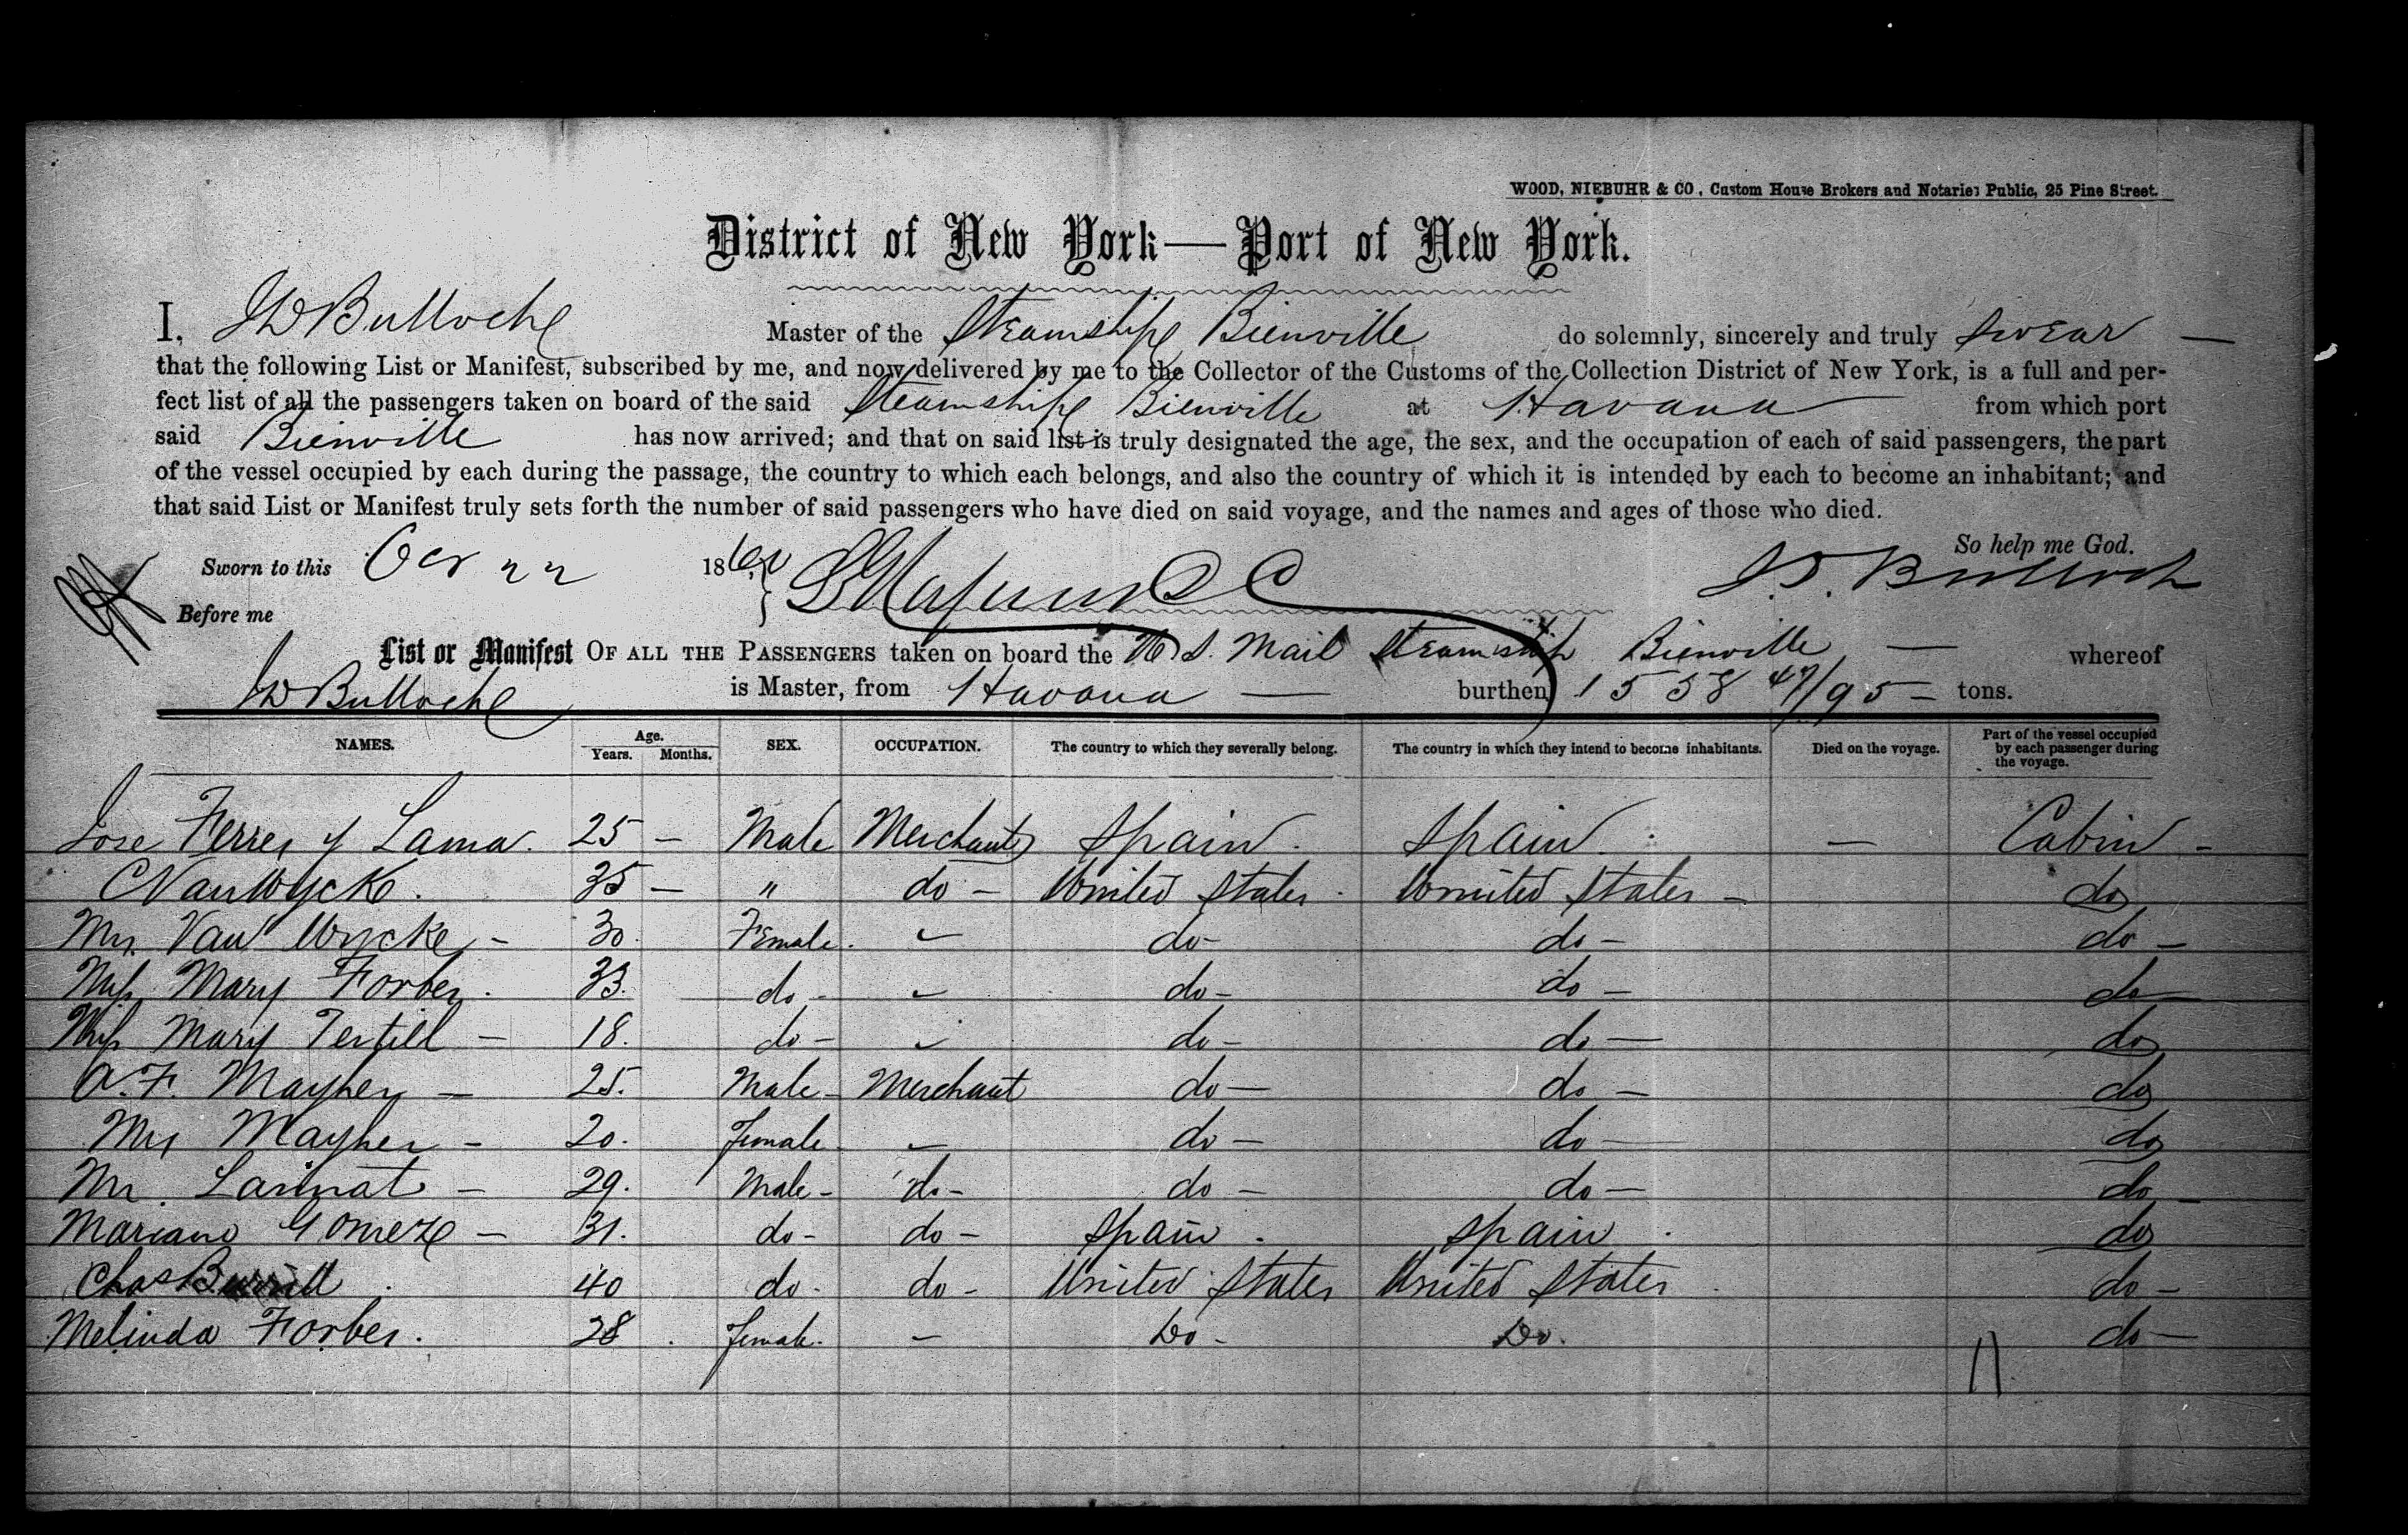 WOOD, NIEBUHR & CO, Custom House Brokers and Notaries Public, 25 Pine Street.
District of New York—Port of New York.
I, JD Bulloch Master of the Steamship Bienville do solemnly, sincerely and truly swear —
that the following List or Manifest, subscribed by me, and now delivered by me to the Collector of the Customs of the Collection District of New York, is a full and per-
fect list of all the passengers taken on board of the said Steamship Bienville at Havana from which port
said Bienville has now arrived; and that on said list is truly designated the age, the sex, and the occupation of each of said passengers, the part
of the vessel occupied by each during the passage, the country to which each belongs, and also the country of which it is intended by each to become an inhabitant; and
that said List or Manifest truly sets forth the number of said passengers who have died on said voyage, and the names and ages of those who died.
So help me God.
Sworn to this Oct 22 1860 J. D. Bulloch
Before me
List or Manifest OF ALL THE PASSENGERS taken on board the U. S. Mail Steamship Bienville — whereof
JD Bulloch is Master, from Havana — burthen 1558 47/95 — tons.
NAMES. Age. Years. Months. SEX. OCCUPATION. The country to which they severally belong. The country in which they intend to become inhabitants. Died on the voyage. Part of the vessel occupied by each passenger during the voyage.
Jose Ferrer y Lama. 25 — Male Merchant Spain. Spain. — Cabin -
C Van Wyck. 35 — " do - United States. United States - do
Mrs Van Wyck - 30. Female. do - do - do -
Miss Mary Forbes. 33. do - do - do - do -
Miss Mary 18. do - do - do - do
A. F. Mayher - 25. Male - Merchant do - do - do
Mrs Mayher - 20. Female - do - do - do
Mr. - 29. Male - do - do - do - do -
Mariano Gomez - 31. do - do - Spain. Spain. do
Chas 40 do. do - United States United States do -
Melinda Forbes. 28. female. - Do - Do. do -
11